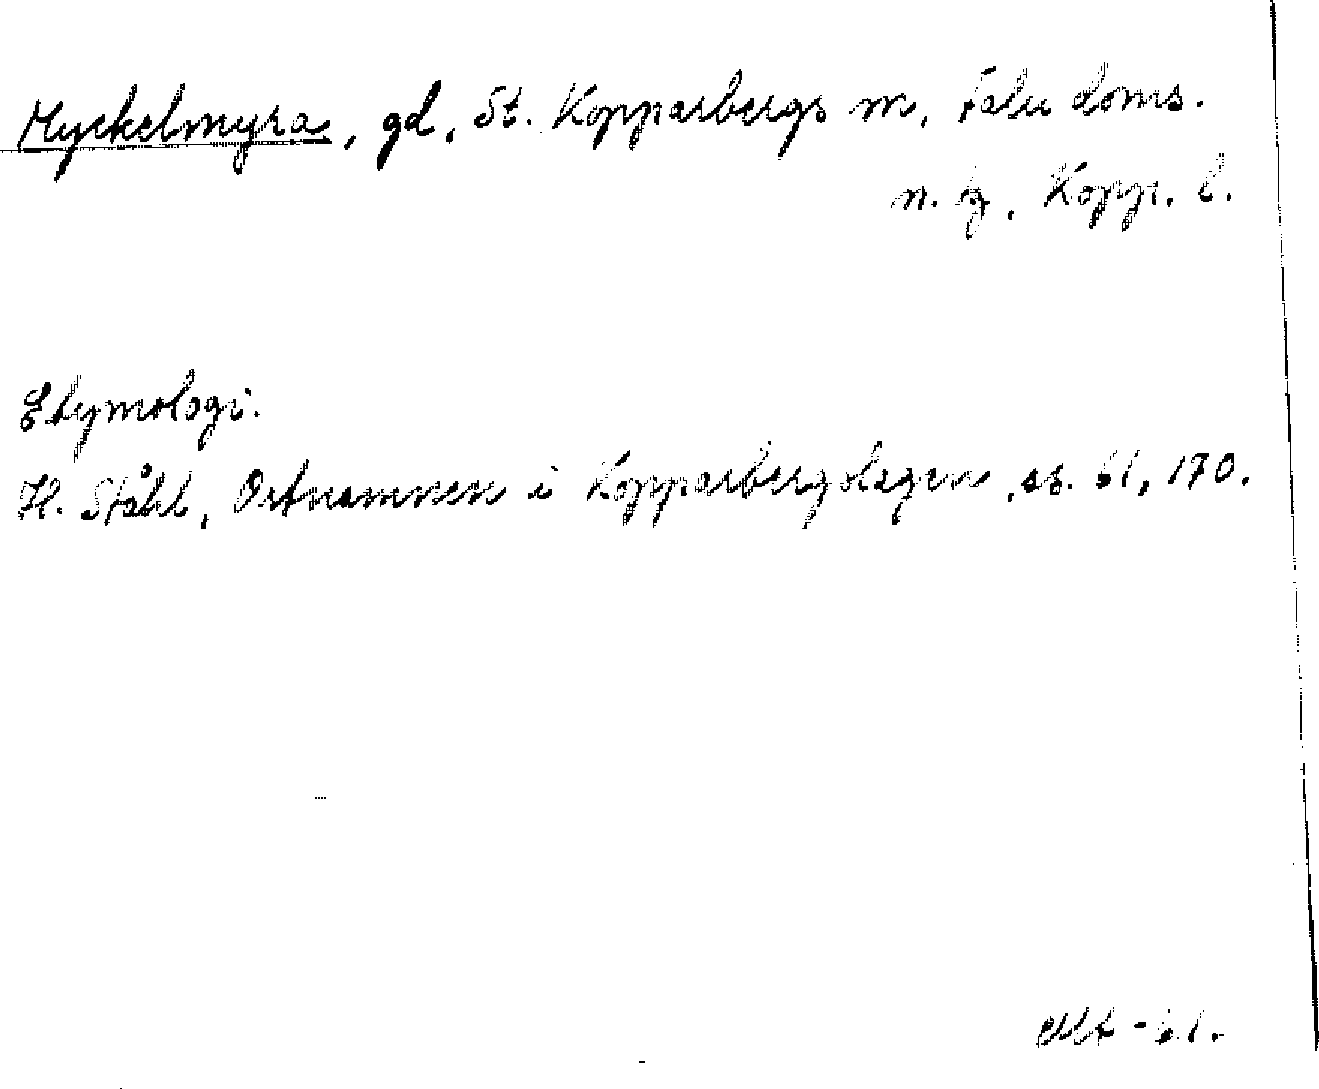 Myckelmyra, gd, St. Kopparbergs sn, Falu doms.
n. tg, Kopp. l.
Etymologi.
H. Ståhl, Ortnamnen i Kopparbergslagen, ss. 61, 170.